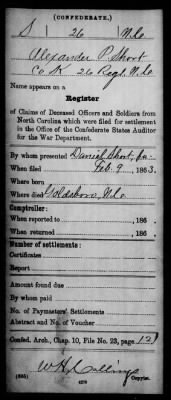 (CONFEDERATE.)
S 26 N.C.
Alexander P. Short
Co K, 26 Regt. N.C.
Name appears on a
Register
of Claims of Deceased Officers and Soldiers from
North Carolina which were filed for settlement
in the Office of the Confederate States Auditor
for the War Department.
By whom presented Daniel Short, fa.
When filed Feb. 9, 1863.
Where born
Where died Goldsboro, N.C.
Comptroller:
When reported to , 186 .
When returned , 186 .
Number of settlements:
Certificates
Report
Amount found due
By whom paid
No. of Paymasters' Settlements
Abstract and No. of Voucher
Confed. Arch., Chap. 10, File No. 23, page 121
W. H. Collins
(635) Copyist.